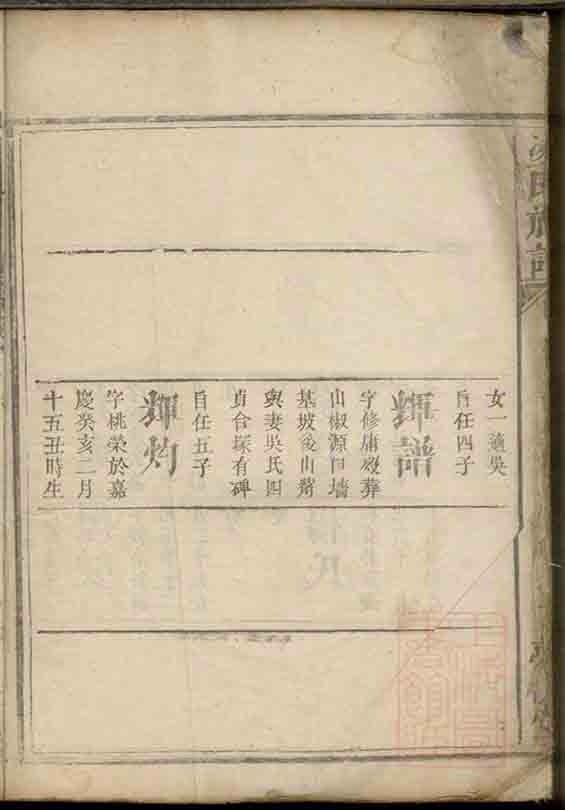 氏族譜
女一適吳
旨任四子
輝譜
字修庸歿葬
山椒源口墻
基坡後山嵜
與妻吳氏四
貞合塚有碑
旨任五子
輝灼
字桃榮於嘉
慶癸亥二月
十五丑時生